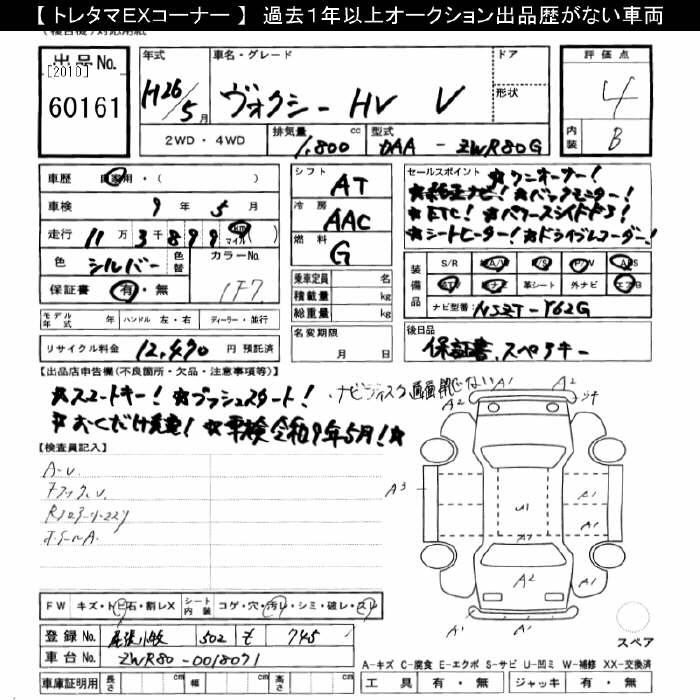 【トレタマEXコーナー】 過去1年以上オークション出品歴がない車両
出品No.
[2010]
60161
年式
H26/5月
車名・グレード
ヴォクシー HV V
ドア
形状
評価点
4
内装
B
2WD・4WD
排気量
1,800 cc
型式
DAA - ZWR80G
車歴 自家用・( )
車検 9年 5月
走行 11万3千899 km マイル
色 シルバー 色替
カラーNo. 1F7
保証書 有・無
モデル年式 年 ハンドル 左・右 ディーラー・並行
リサイクル料金 12,490 円 預託済
シフト AT
冷房 AAC
燃料 G
乗車定員 名
積載量 kg
総重量 kg
名変期限 月 日
セールスポイント ★ワンオーナー!
★純正ナビ!★バックモニター!
★ETC!★パワースライドドア!
★シートヒーター!★ドライブレコーダー!
装備品
S/R A/W P/S P/W ABS
ATV ナビ 革シート 外ナビ エアB
ナビ型番 NSZT-Y62G
後日品
保証書、スペアキー
【出品店申告欄(不良箇所・欠品・注意事項等)】
★スマートキー!★プッシュスタート!
・ナビディスク
★おくだけ充電!★車検令和9年5月!★
【検査員記入】
A-U
FW キズ・トビ石・割レX シート内装 コゲ・穴・汚レ・シミ・破レ・スレ
登録No. 尾張小牧 502 も 745
車台No. ZWR80-0018071
車庫証明用 長さ cm 幅 cm 高さ cm
A1 A2
A2
A3
A1
A1
U1
A2
A1 A1
スペア
A-キズ C-腐食 E-エクボ S-サビ U-凹ミ W-補修 XX-交換済
工具 有・無 ジャッキ 有・無